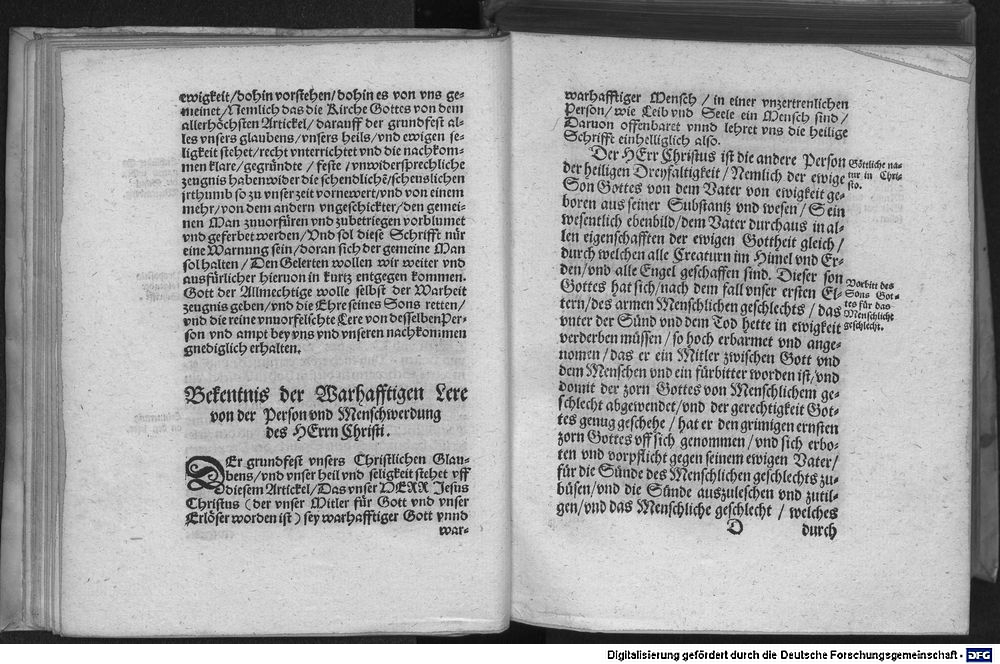 ewigkeit/dohin vorstehen/dohin es von vns ge-
meinet/Nemlich das die Kirche Gottes von dem
allerhöchsten Artickel/darauff der grundfest al-
les vnsers glaubens/vnsers heils/vnd ewigen se-
ligkeit stehet/recht vnterrichtet vnd die nachkom-
men klare/gegründte/feste/vnwidersprechliche
zeugnis haben wider die schendlichẽ/scheuslichen
irthumb so zu vnser zeit vornewert/vnd von einem
mehr/von dem andern vngeschickter/den gemei-
nen Man zuuorfüren vnd zubetriegen vorblumet
vnd geferbet werden/Vnd sol diese Schrifft nür
eine Warnung sein/doran sich der gemeine Man
sol halten/Den Gelerten wollen wir weiter vnd
ausfürlicher hieruon in kurtz entgegen kommen.
Gott der Allmechtige wolle selbst der Warheit
zeugnis geben/vnd die Ehre seines Sons retten/
vnd die reine vnuorfelschte Lere von desselben Per-
son vnd ampt bey vns vnd vnseren nachkommen
gnediglich erhalten.
Bekentnis der Warhafftigen Lere
von der Person vnd Menschwerdung
des HErrn Christi.
DEr grundfest vnsers Christlichen Glau-
bens/vnd vnser heil vnd seligkeit stehet vff
diesem Artickel/Das vnser HERR Jesus
Christus (der vnser Mitler für Gott vnd vnser
Erlöser worden ist) sey warhafftiger Gott vnnd
war-
warhafftiger Mensch/in einer vnzertrenlichen
Person/wie Leib vnd Seele ein Mensch sind/
Daruon offenbaret vnnd lehret vns die heilige
Schrifft einhelliglich also.
Der HErr Christus ist die andere Person
der heiligen Dreyfaltigkeit/Nemlich der ewige
Son Gottes von dem Vater von ewigkeit ge-
boren aus seiner Substantz vnd wesen/Sein
wesentlich ebenbild/dem Vater durchaus in al-
len eigenschafften der ewigen Gottheit gleich/
durch welchen alle Creaturn im Himel vnd Er-
den/vnd alle Engel geschaffen sind. Dieser son
Gottes hat sich/nach dem fall vnser ersten El-
tern/des armen Menschlichen geschlechts/das
vnter der Sünd vnd dem Tod hette in ewigkeit
verderben müssen/so hoch erbarmet vnd ange-
nomen/das er ein Mitler zwischen Gott vnd
dem Menschen vnd ein fürbitter worden ist/vnd
domit der zorn Gottes von Menschlichem ge-
schlecht abgewendet/vnd der gerechtigkeit Got-
tes genug geschehe/hat er den grimigen ernsten
zorn Gottes vff sich genommen/vnd sich erbo-
ten vnd vorpflicht gegen seinem ewigen Vater/
für die Sünde des Menschlichen geschlechts zu-
büsen/vnd die Sünde auszuleschen vnd zutil-
gen/vnd das Menschliche geschlecht/welches
D durch
Göttliche na-
tur in Chri-
sto.
Vorbitt des
Sons Got-
tes für das
Menschlicht
geschlecht.
Digitalisierung gefördert durch die Deutsche Forschungsgemeinschaft - DFG